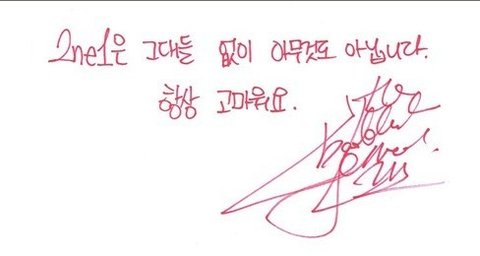 2ne1은 그대들 없이 아무것도 아닙니다.
항상 고마워요.